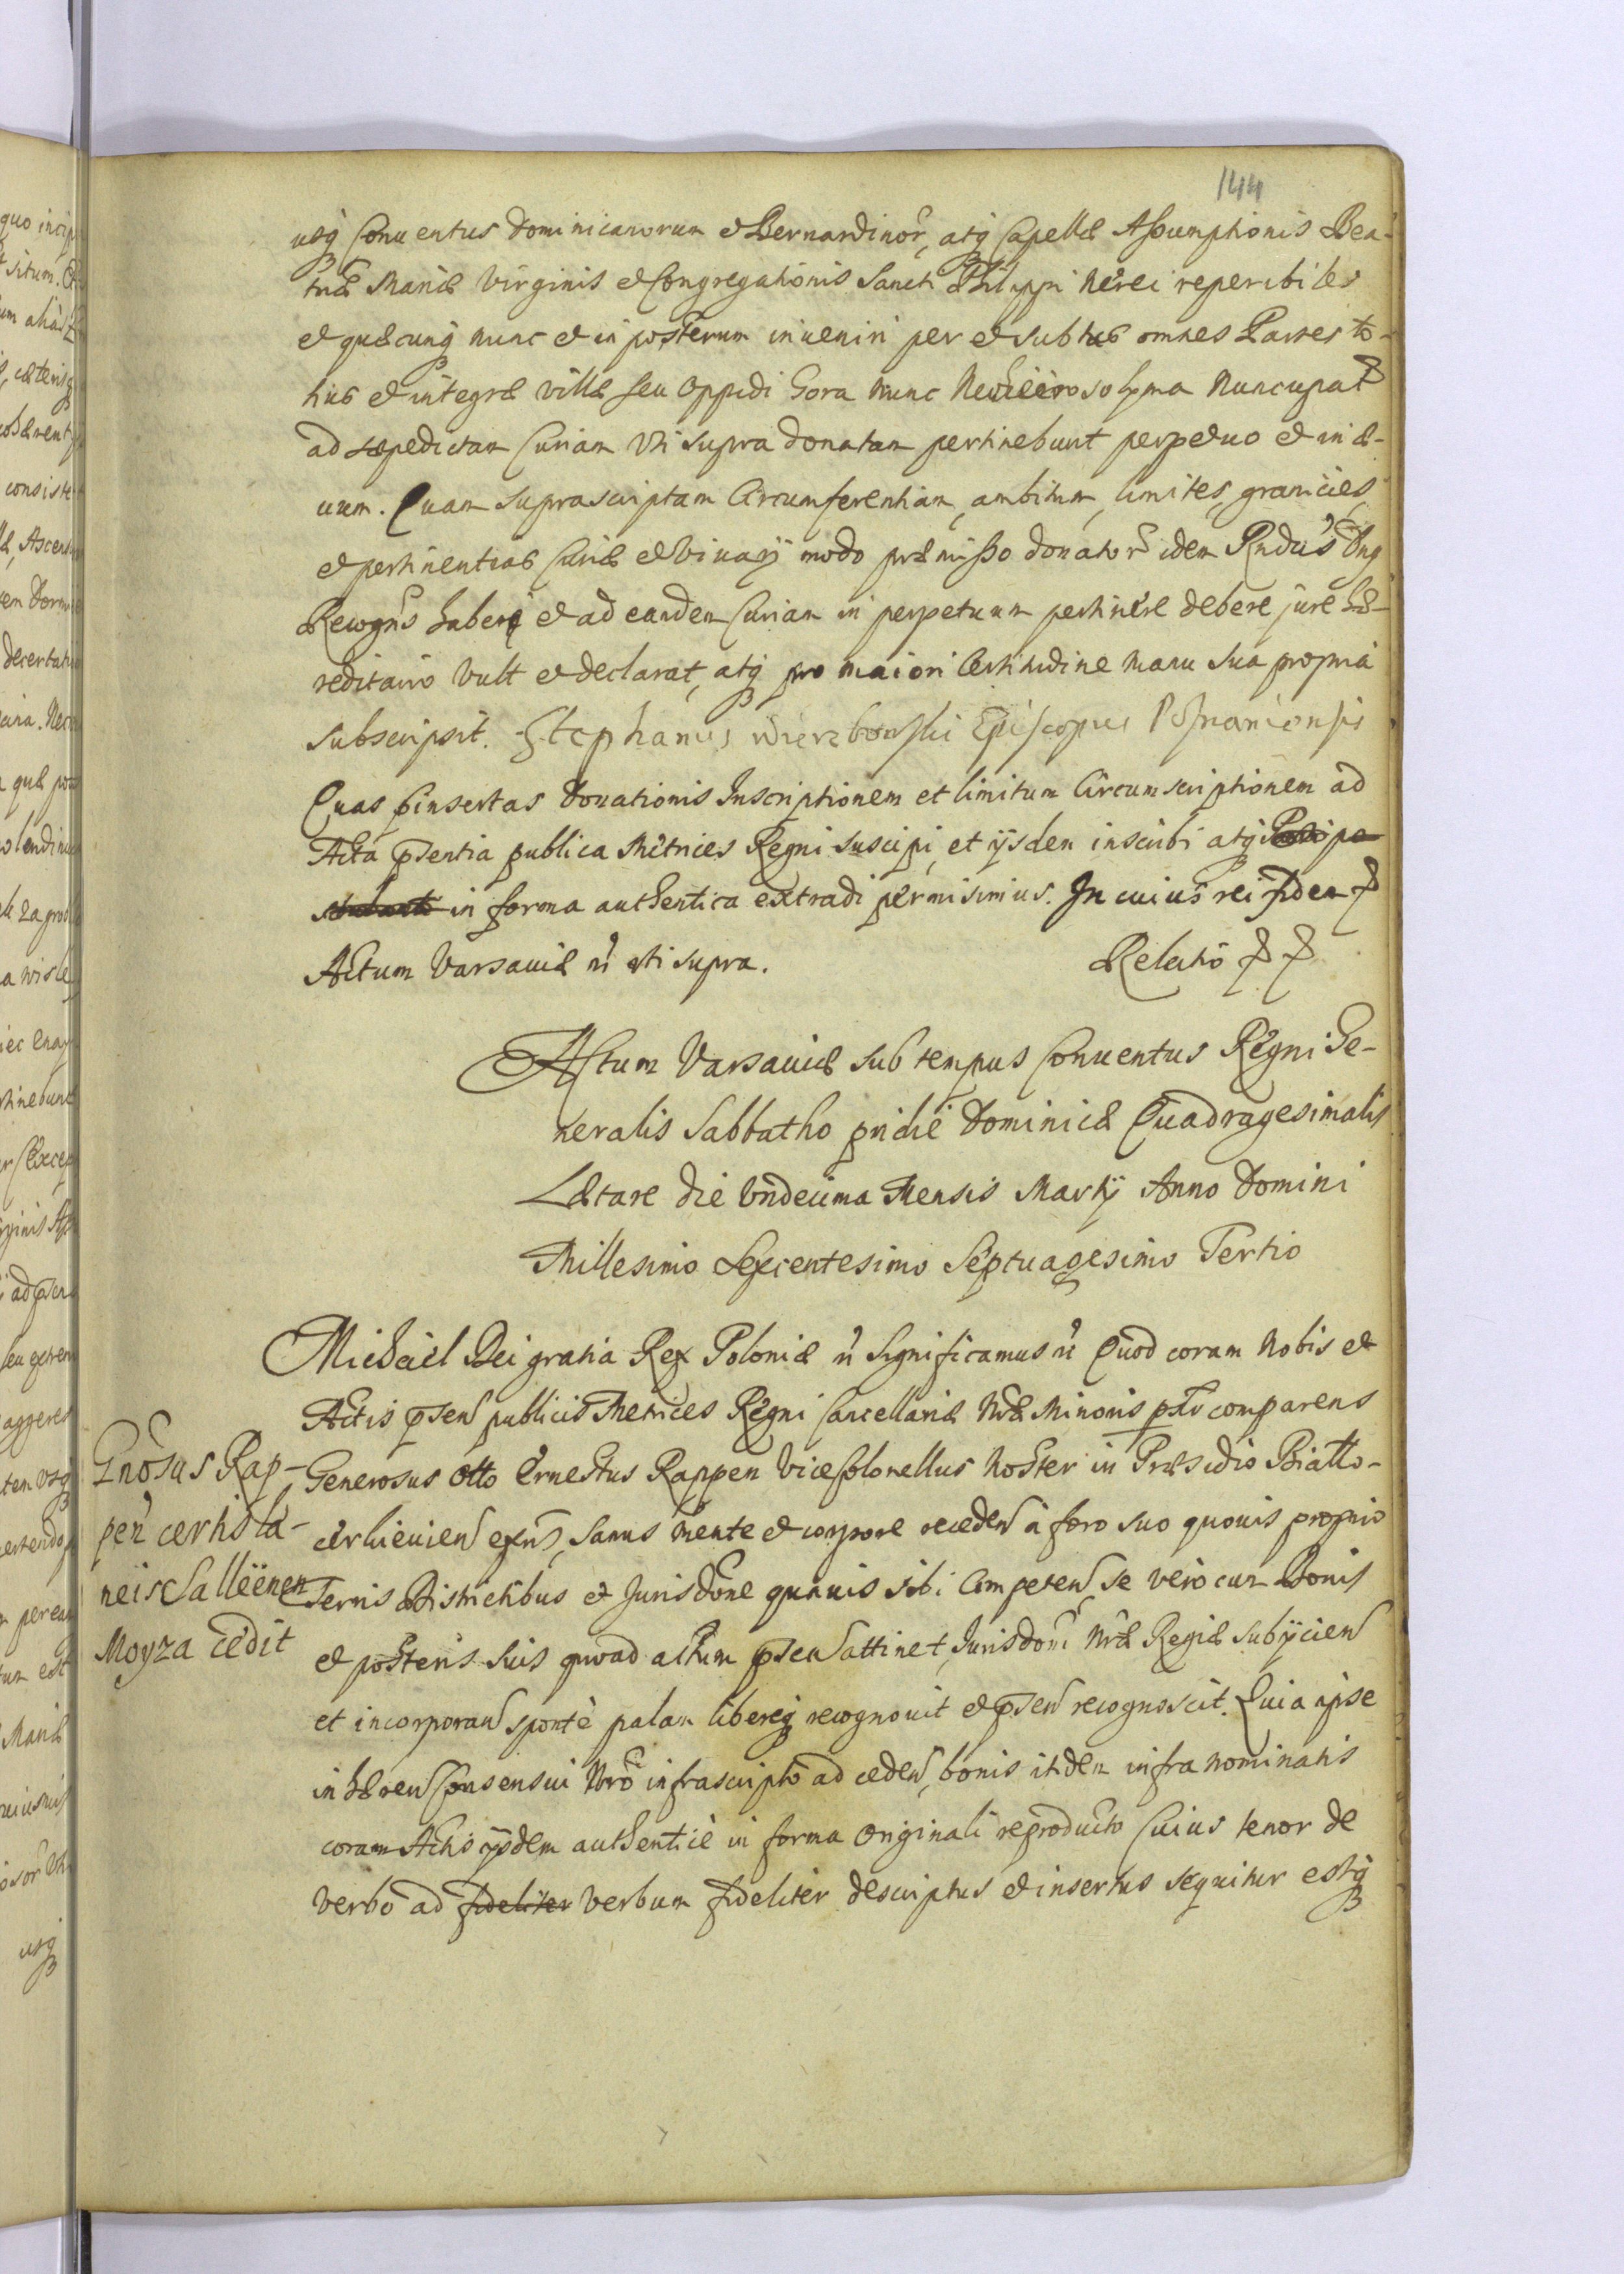 144
usq Conuentus Dominicanorum et Bernardinor, atq Capellæ Assumptionis Bea-
tæ Mariæ Virginis et Congregationis Sancti Philippi Nerei reperibiles
et quæcunq nunc et in posterum inueniri per et subtus omnes Partes to-
tius et integræ villæ seu Oppidi Gora nunc Neo Hierosolyma Nuncupat
ad sæpedictam Curiam Vti supra donatam pertinebunt perpetuo et in æ-
uum. Quam suprascriptam Circumferentiam, ambitum, limites, granicies,
et pertinentias Curiæ et Viuarij modo præmisso donator idem Rndus Dnq
Recogns haberi et ad eandem Curiam in perpetuum pertinere debere jure hæ-
reditario Vult et declarat, atq pro maiori Certitudine manu sua propria
subscripsit. Stephanus Wierzbowski Episcopus Posnaniensis
Quas pinsertas Donationis Inscriptionem et limitum Circumscriptionem ad
Acta psentia publica Metrices Regni suscipi, et ijsdem inscribi atq
in forma authentica extradi permisimus. In cuius rei fidem
Actum Varsauiæ ñ vti supra. Relatio
Actum Varsauiæ sub tempus Conuentus Regni Ge-
neralis Sabbatho pridie Dominicæ Quadragesimalis
Lætare die Vndecima Mensis Martij Anno Domini
Millesimo Sexcentesimo Septuagesimo Tertio
Michaël Dei gratia Rex Poloniæ ñ Significamus ñ Quod coram Nobis et
Actis psen publicis Metrices Regni Cancellariæ Nræ Minoris psr comparens
Generosus Otto Ernestus Rappen ViceColonellus Noster in Præsidio Biatto-
cerkieuien exns, sanus mente et corpore receden à foro suo quouis proprio
Terris Districtibus et Jurisdone quauis sibi Competen se vero cum Bonis
et posteris suis quoad actum psen attinet, Jurisdoni Nræ Regiæ subijcien
et incorporan sponte palam libereq recognouit et psen recognoscit. Quia ipse
inhæren Consensui Nro infrascripto ad ceden, bonis itidem infra nominatis
coram Actis ijsdem authentice in forma Originali reproducto Cuius tenor de
verbo ad fideliter verbum fideliter descriptus et insertus sequitur estq
Gnosus Rap-
pen certis la-
neis Salleënen
Moyza cedit